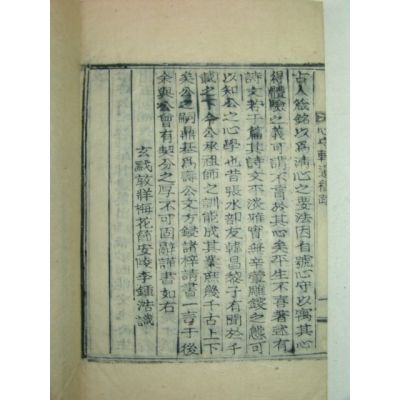 古人銘以爲淸心之要法因自號心守以寓其心
得體驗之義可謂不於其心矣平生不喜著述有
詩文若干篇其詩文平淡雅實無辛蒙雕鎪之態可
以知公之心學也昔張水部友韓昌黎子有聞於千
載之下今公承祖師之訓能成其業庶幾千古上下
矣公之鼎基爲壽公文方錄諸梓請書一言于後
余與公曾有契公之厚不可固辭謹書如右
玄黓敦牂梅花節安李鍾浩識
心守軒遺稿